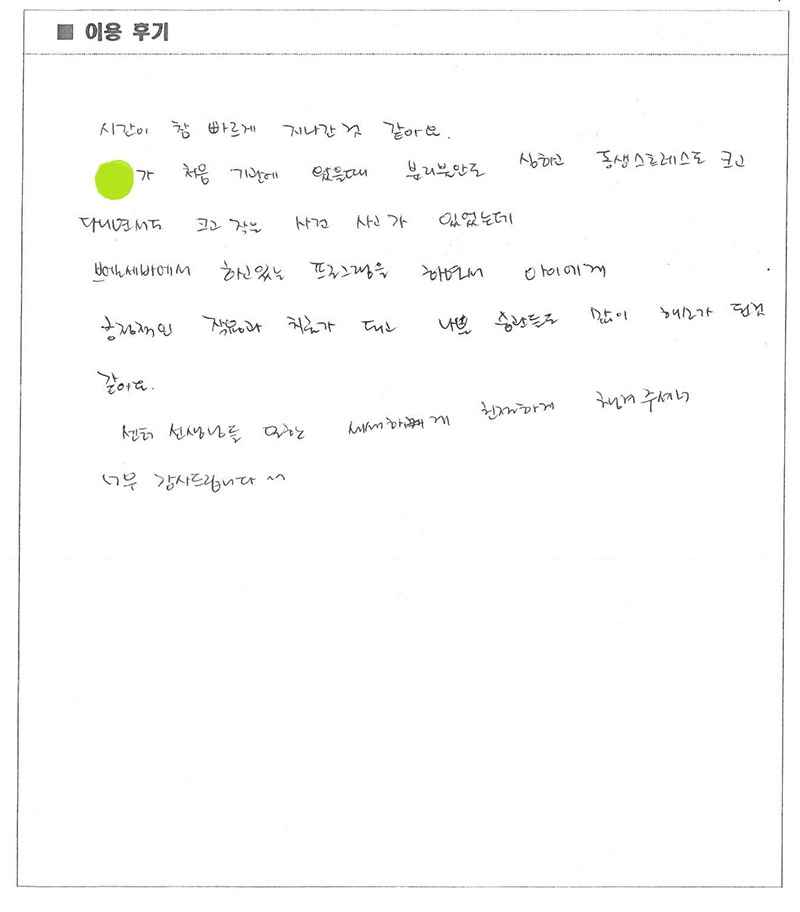 ■ 이용 후기
시간이 참 빠르게 지나간것 같아요.
가 처음 기관에 왔을때 분리불안도 심하고 동생스트레스도 크고
다니면서도 크고 작은 사건 사고가 있었는데
쁘에세바에서 하고있는 프로그램을 하면서 아이에게
긍정적인 작용과 치료가 되고 나쁜 습관들도 많이 해소가 된것
같아요.
센터 선생님들 또한 세세하게 친절하게 챙겨주셔서
너무 감사드립니다 ^^